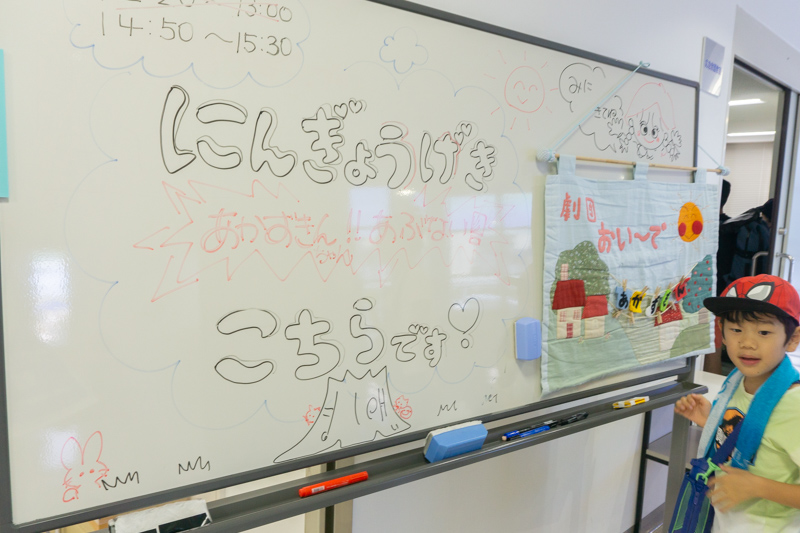 13:00
14:50 〜15:30
にんぎょうげき
あかずきん!! あぶなーい!
の巻
こちらです!
入口
みに
きてね
劇団
おい〜で
あかずきん